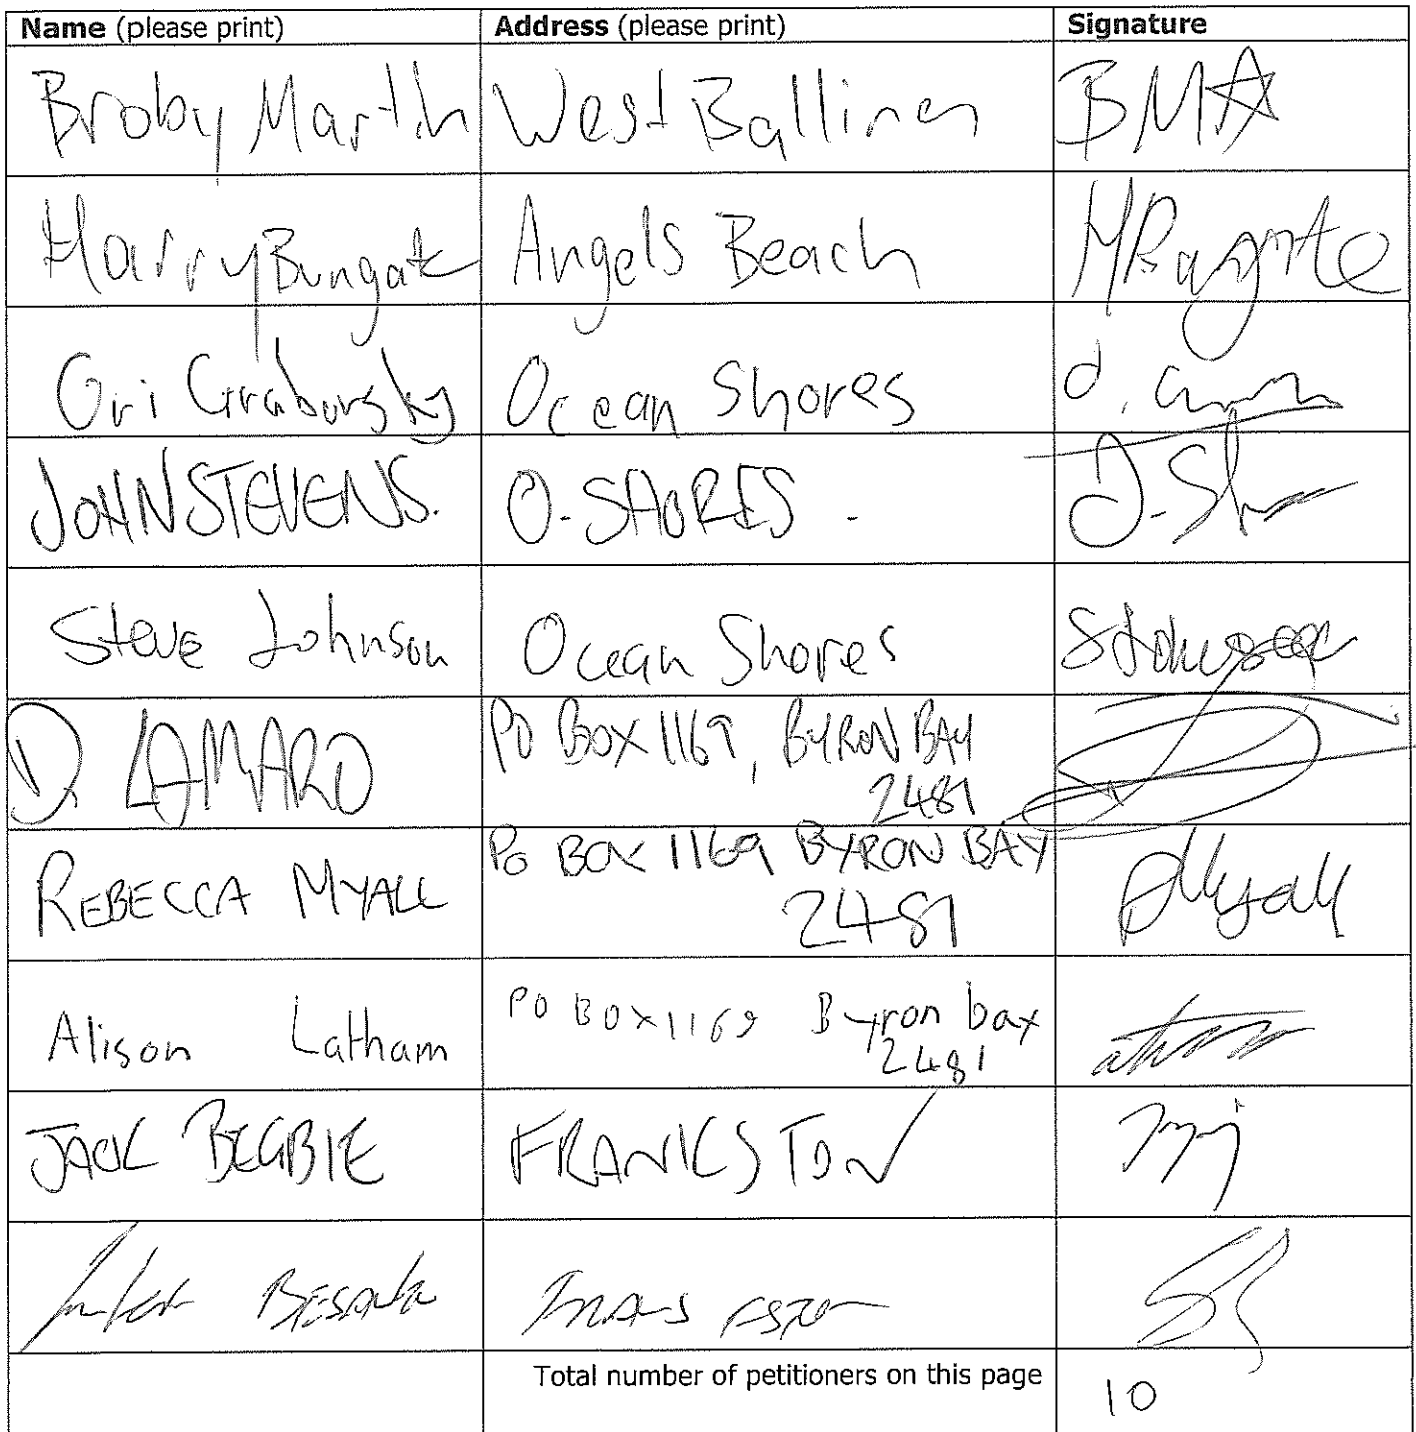 Name (please print) Address (please print) Signature
Broby Martin West Ballina BM
Harry Bungate Angels Beach
Ori Grabovsky Ocean Shores
JOHN STEVENS. O. SHORES.
Steve Johnson Ocean Shores
D. LAMARO PO BOX 1169, BYRON BAY
2481
REBECCA MYALL PO BOX 1169 BYRON BAY
2481
Alison Latham PO BOX 1169 Byron bay
2481
JACK BEGBIE FRANKSTON
Total number of petitioners on this page
10